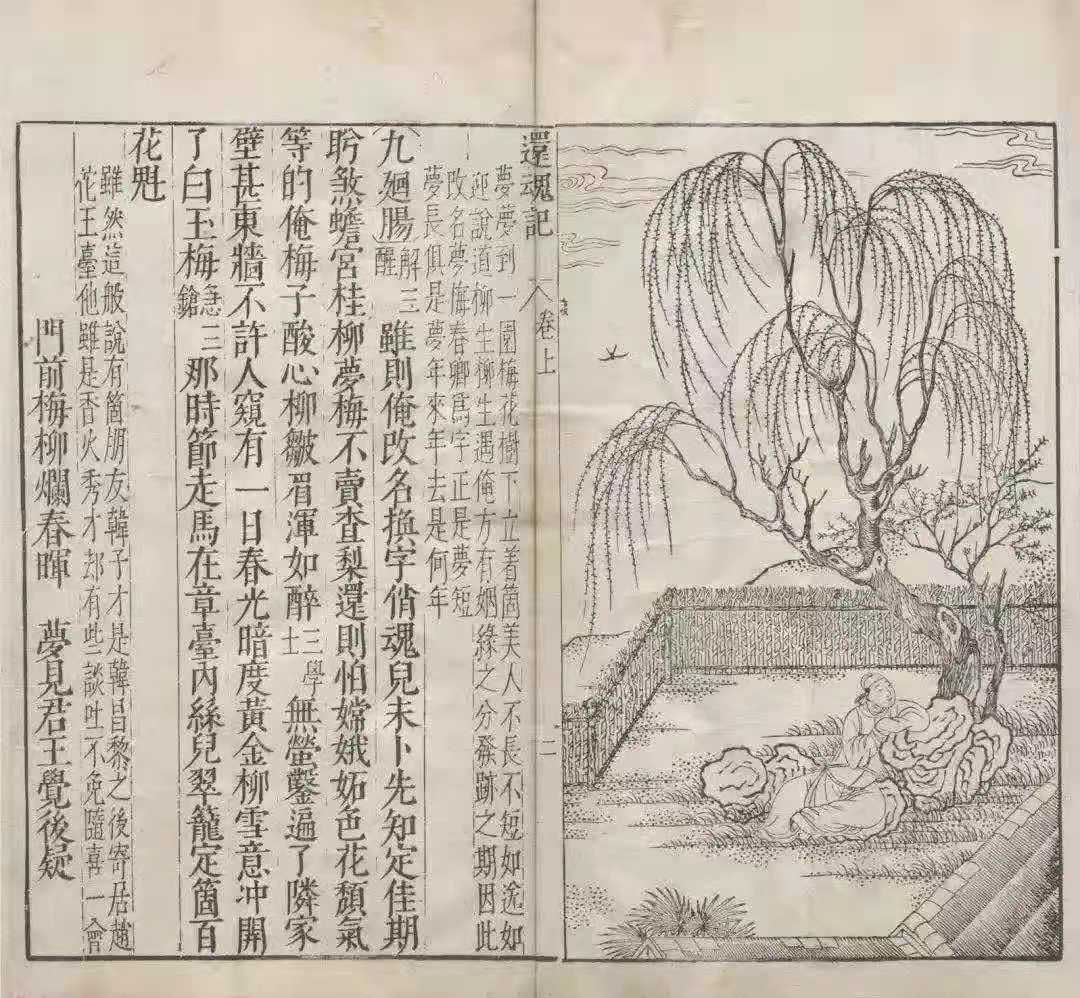 還魂記 卷上 二
夢夢到一園梅花樹下立着箇美人不長不短如送如
迎說道柳生柳生遇俺方有姻緣之分發跡之期因此
改名夢梅春卿為字正是夢短
夢長俱是夢年來年去是何年
九廻腸 解三醒 雖則俺改名換字俏魂兒未卜先知定佳期
盻煞蟾宮桂柳夢梅不賣查梨還則怕嫦娥妬色花頹氣
等的俺梅子酸心柳皺眉渾如醉 三學士 無螢鑿遍了隣家
壁甚東牆不許人窺有一日春光暗度黃金柳雪意冲開
了白玉梅 急三鎗 那時節走馬在章臺內絲兒翠籠定箇百
花魁
雖然這般說有箇朋友韓子才是韓昌黎之後寄居趙
花王臺他雖是香火秀才却有些談吐不免隨喜一會
門前梅柳爛春暉 夢見君王覺後疑